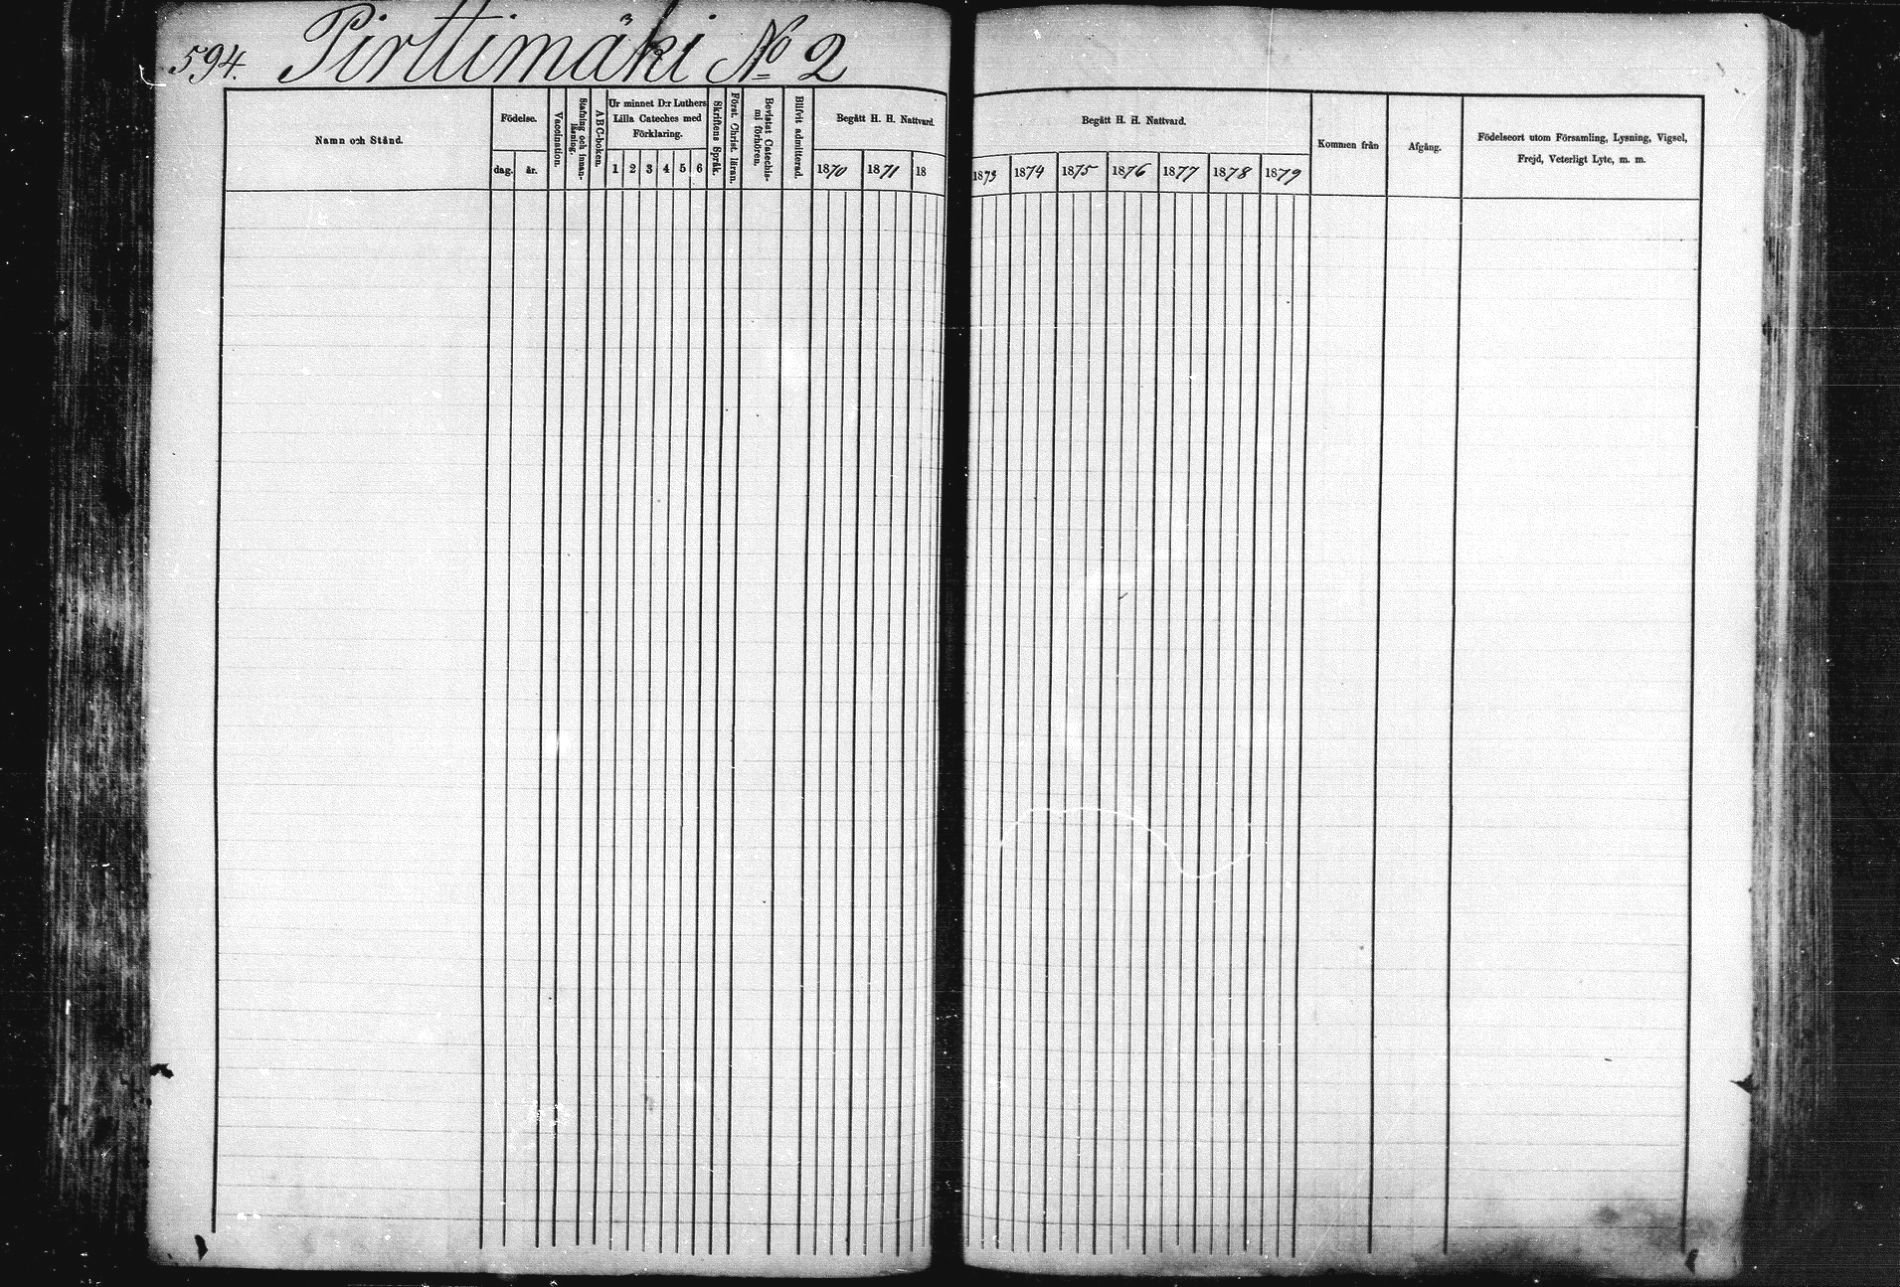 594. Pirttimäki No 2
Namn och Stånd.
Födelse.
dag.
år.
Vaccination.
Stafning och innan-
läsning.
A B C-boken.
Ur minnet D:r Luthers
Lilla Cateches med
Förklaring.
1 2 3 4 5 6
Skriftens Språk.
Först. Christ. läran.
Bevistat Catechis-
mi förhören.
Blifvit admitterad.
Begått H. H. Nattvard
1870 1871 18
Begått H. H. Nattvard.
1873 1874 1875 1876 1877 1878 1879
Kommen från
Afgång.
Födelseort utom Församling, Lysning, Vigsel,
Frejd, Veterligt Lyte, m. m.